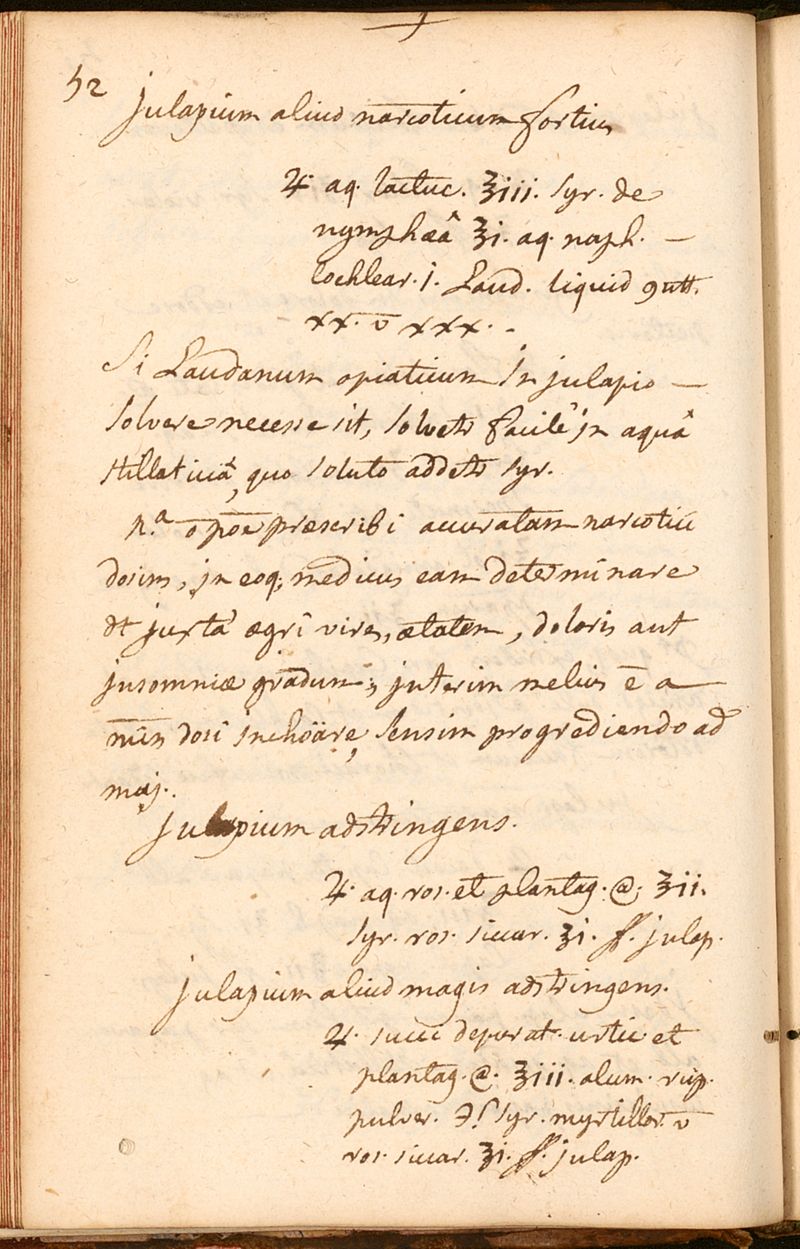 52
Julapium aliud narcoticum fortius
♃ aq. lactuc. ℥iii. syr. de
nymphæâ ℥i. aq. naph. —
cochlear. i. Laud. liquid gutt.
xx. v̄ xxx. -
Si Laudanum opiaticum in julapio —
solvere necesse sit, solvets facilè in aquâ
stillaticiâ, quo soluto addets syr.
præscribi accuratam narcotici
dosim, in eoq; medicus eam determinare
dt juxta ægri vires, ætatem, doloris aut
insomniæ gradum; interim melius ē a
min dosi inchöare, sensim progrediendo ad
maj.
Julapium adstringens.
♃ aq. ros. et plantag. @. ℥ii.
syr. ros. siccar. ℥i. ff. julap.
Julapium aliud magis adstringens.
♃ succi depurat. urtic et
plantag. @. ℥iii. alum. rup.
pulver. ℈ſ syr. myrtillor. v̄
ros. siccar. ℥i. ff. julap.